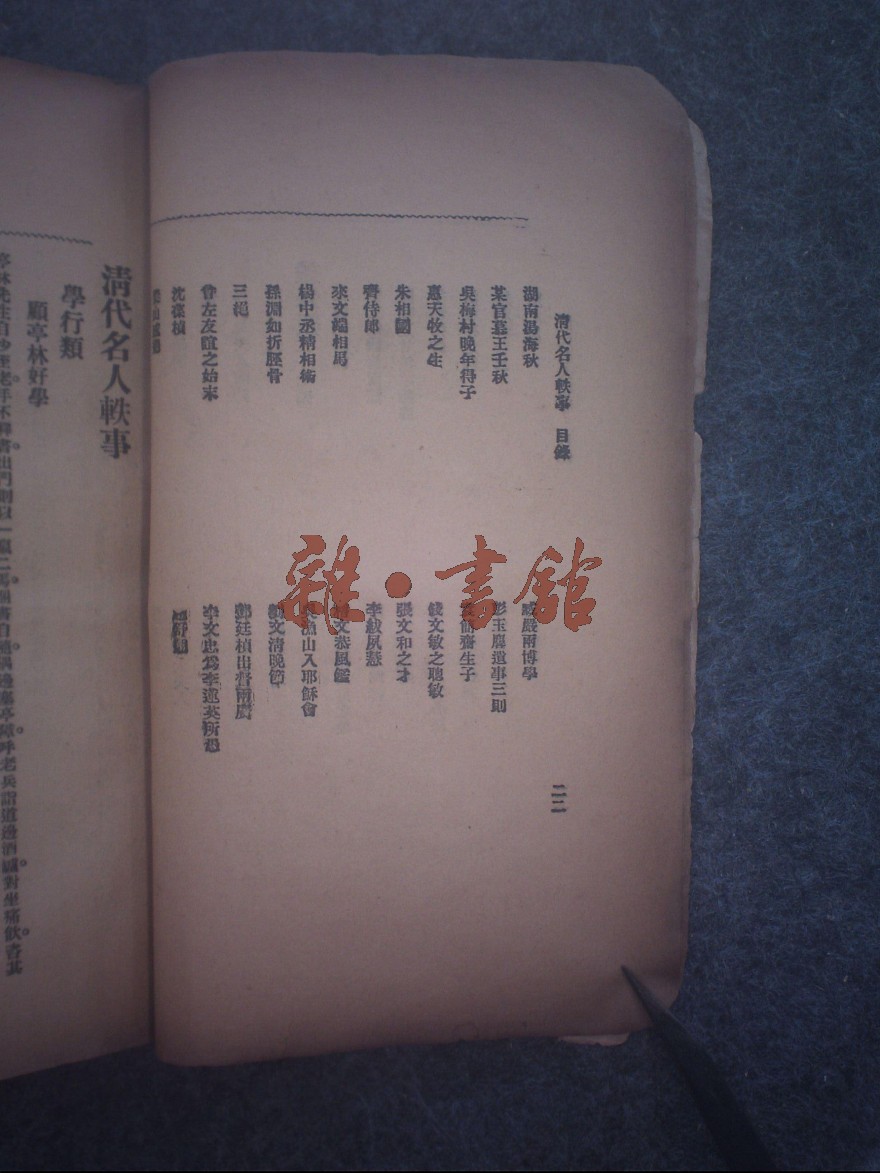 清代名人軼事　目錄
二二
湖南湯海秋
某官慕王壬秋
吳梅村晚年得子
惠天牧之生
朱相國
齊侍郎
李文端相馬
楊中丞精相術
孫淵如折脛骨
三絕
曾左友誼之始末
沈葆楨
嚴兩博學
彭玉麐遺事三則
齋生子
錢文敏之聰敏
張文和之才
李紱夙慧
文恭風鑑
漁山入耶穌會
文清晚節
鄧廷楨出督兩廣
李文忠爲李蓮英所恐
雜·書館
清代名人軼事
學行類
顧亭林好學
亭林先生自少至老手不釋書出門則以一騾二馬捆書自隨遇邊塞亭障呼老兵詣道邊酒壚對坐痛飲咨其